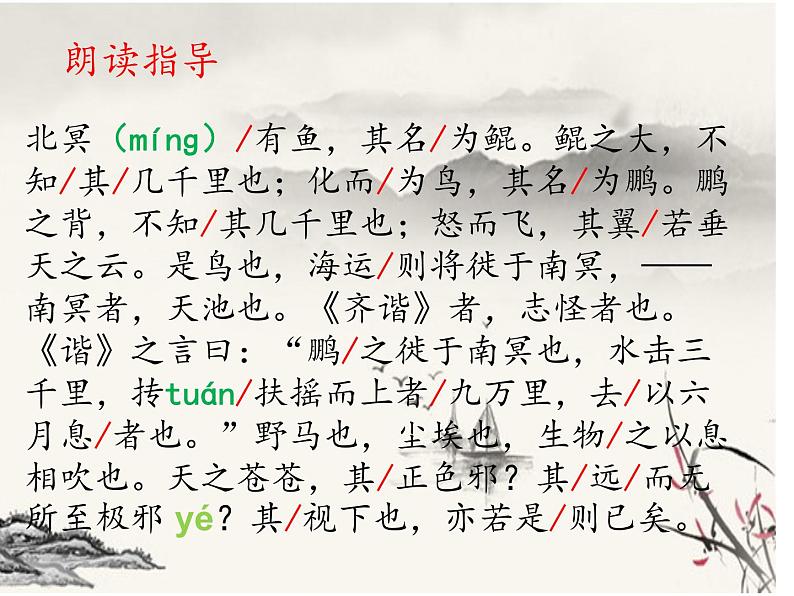 朗读指导
北冥（míng）/有鱼，其名/为鲲。鲲之大，不
知/其/几千里也；化而/为鸟，其名/为鹏。鹏
之背，不知/其几千里也；怒而飞，其翼/若垂
天之云。是鸟也，海运/则将徙于南冥，——
南冥者，天池也。《齐谐》者，志怪者也。
《谐》之言曰：“鹏/之徙于南冥也，水击三
千里，抟tuán/扶摇而上者/九万里，去/以六
月息/者也。”野马也，尘埃也，生物/之以息
相吹也。天之苍苍，其/正色邪？其/远/而无
所至极邪 yé？其/视下也，亦若是/则已矣。